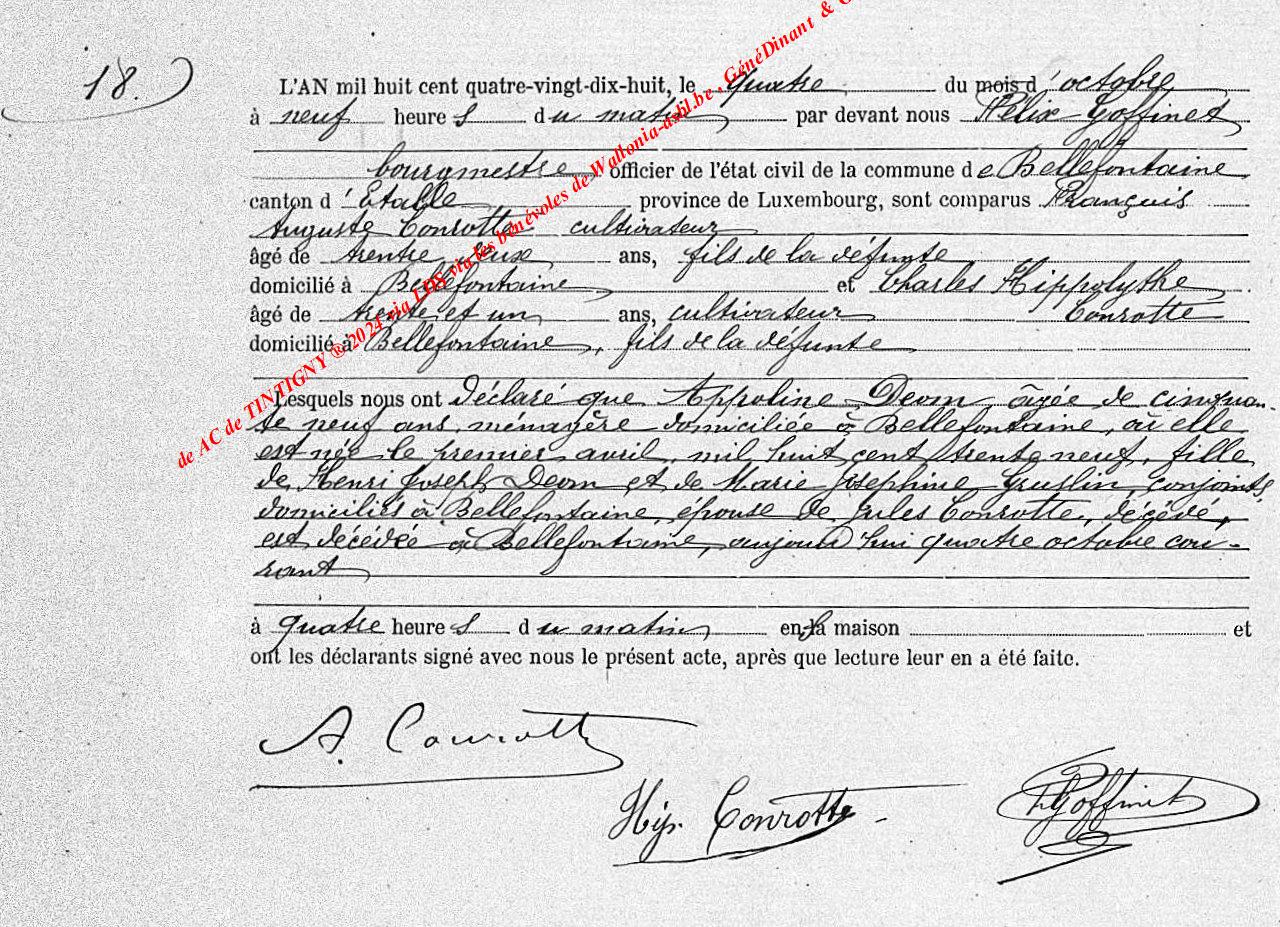 18.
L'AN mil huit cent quatre-vingt-dix-huit, le quatre du mois d'octobre
à neuf heures du matin par devant nous Félix Goffinet
bourgmestre officier de l'état civil de la commune de Bellefontaine
canton d'Etalle province de Luxembourg, sont comparus François
Auguste Conrotte cultivateur
âgé de trentre deux ans, fils de la défunte
domicilié à Bellefontaine et Charles Hippolythe
âgé de trente et un ans, cultivateur Conrotte
domicilié à Bellefontaine, fils de la défunte
Lesquels nous ont déclaré que Appoline Deom âgée de cinquan-
te neuf ans, ménagère domiciliée à Bellefontaine, où elle
est née le premier avril, mil huit cent trente neuf, fille
de Henri Joseph Deom et de Marie Josephine Gruslin, conjoints,
domiciliés à Bellefontaine, épouse de Jules Conrotte, décédé,
est décédée à Bellefontaine, aujourd'hui quatre octobre cou-
rant
à quatre heures du matin en sa maison et
ont les déclarants signé avec nous le présent acte, après que lecture leur en a été faite.
A. Conrotte
Hip. Conrotte
F Goffinet
de AC de TINTIGNY ® 2024 via LDS via les bénévoles de Wallonia-asbl.be , GénéDinant & G